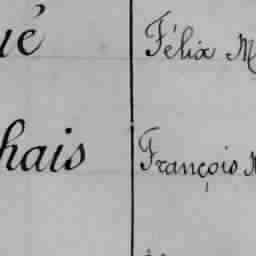 ué Félix M
hais François M